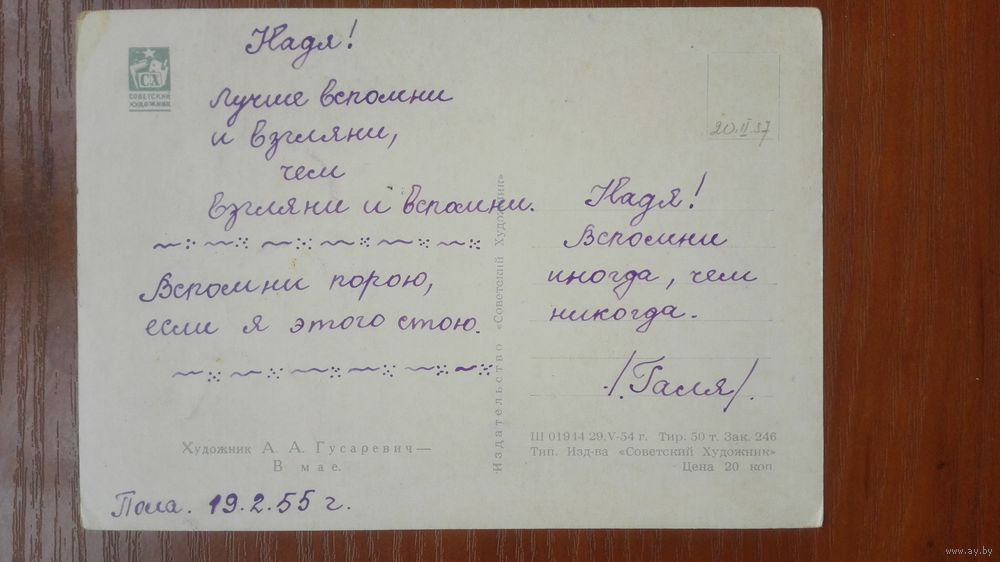 Надя!
СХ
СОВЕТСКИЙ
ХУДОЖНИК
Лучше вспомни
и взгляни,
чем
взгляни и вспомни.
Вспомни порою,
если я этого стою.
Художник А. А. Гусаревич—
В мае.
Пола. 19.2.55 г.
Издательство «Советский Художник»
20.II.57
Надя!
Вспомни
иногда, чем
никогда.
/Галя/.
Ш 01914 29.V-54 г. Тир. 50 т. Зак. 246
Тип. Изд-ва «Советский Художник»
Цена 20 коп
www.ay.by